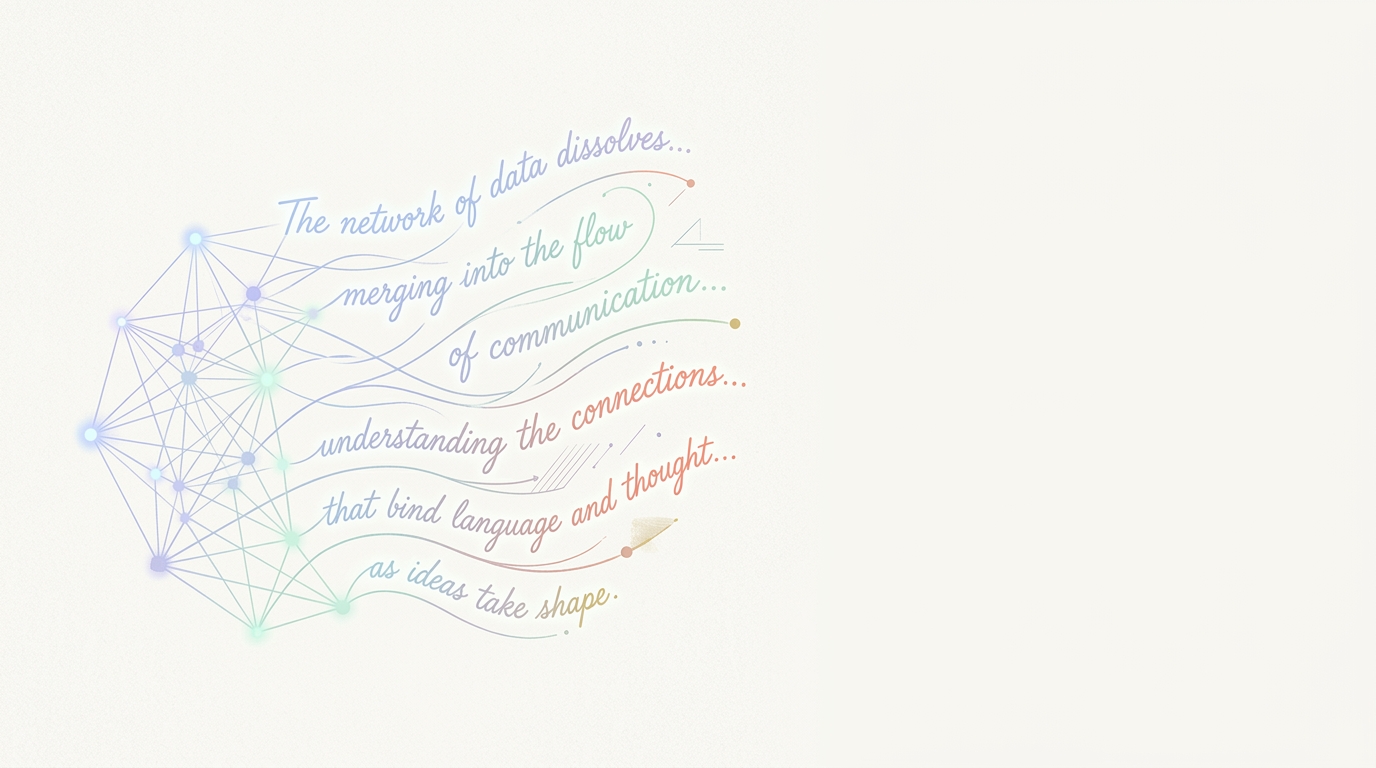 The network of data dissolves...
merging into the flow
of communication...
understanding the connections...
that bind language and thought...
as ideas take shape.